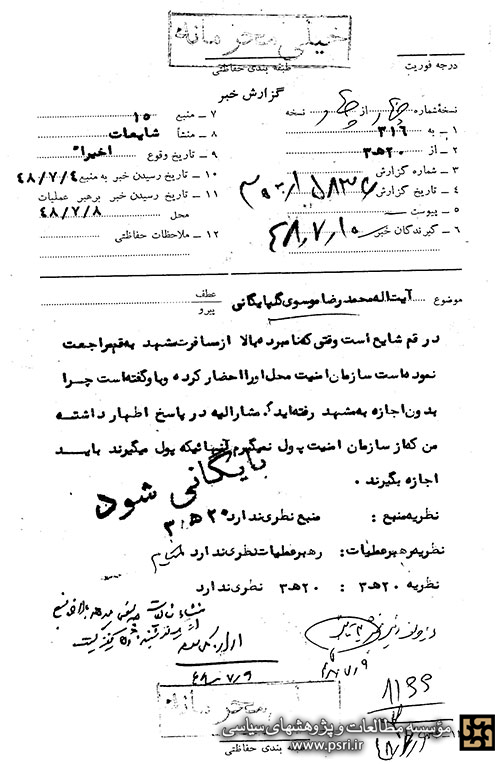 خیلی محرمانه
طبقه بندی حفاظتی
درجه فوریت
گزارش خبر
نسخهٔ شماره چهار از چهار نسخه
۱ – به ۳۱۶
۲ – از ۲۰ﻫ۳
۳ – شماره گزارش
۴ – تاریخ گزارش
۵ – پیوست
۶ – گیرندگان خبر
۴۸/۷/۱۰
۷ – منبع ۱۵
۸ – منشأ شایعات
۹ – تاریخ وقوع اخیرا"
۱۰ – تاریخ رسیدن خبر به منبع ۴۸/۷/۴
۱۱ – تاریخ رسیدن خبر برهبر عملیات
محل ۴۸/۷/۸
۱۲ – ملاحظات حفاظتی
موضوع آیت اله محمد رضا موسوی گلپایگانی
عطف
پیرو
در قم شایع است وقتی که نامبرده بالا از مسافرت مشهد به قم مراجعت
نموده است سازمان امنیت محل او را احضار کرده و باو گفته است چرا
بدون اجازه به مشهد رفته اید؟. مشارالیه در پاسخ اظهار داشته
من که از سازمان امنیت پول نمیگیرم آنهائیکه پول میگیرند باید
اجازه بگیرند .
بایگانی شود
نظریه منبع : منبع نظری ندارد ۲۰ﻫ۳
نظریه رهبر عملیات: رهبر عملیات نظری ندارد
نظریه ۲۰ﻫ۳ : ۲۰ﻫ۳ نظری ندارد
۴۸/۷/۹
۴۸/۷/۹
۸۱۶۶
محرمانه
طبقه بندی حفاظتی
مؤسسه مطالعات و پژوهشهای سیاسی
www.psri.ir